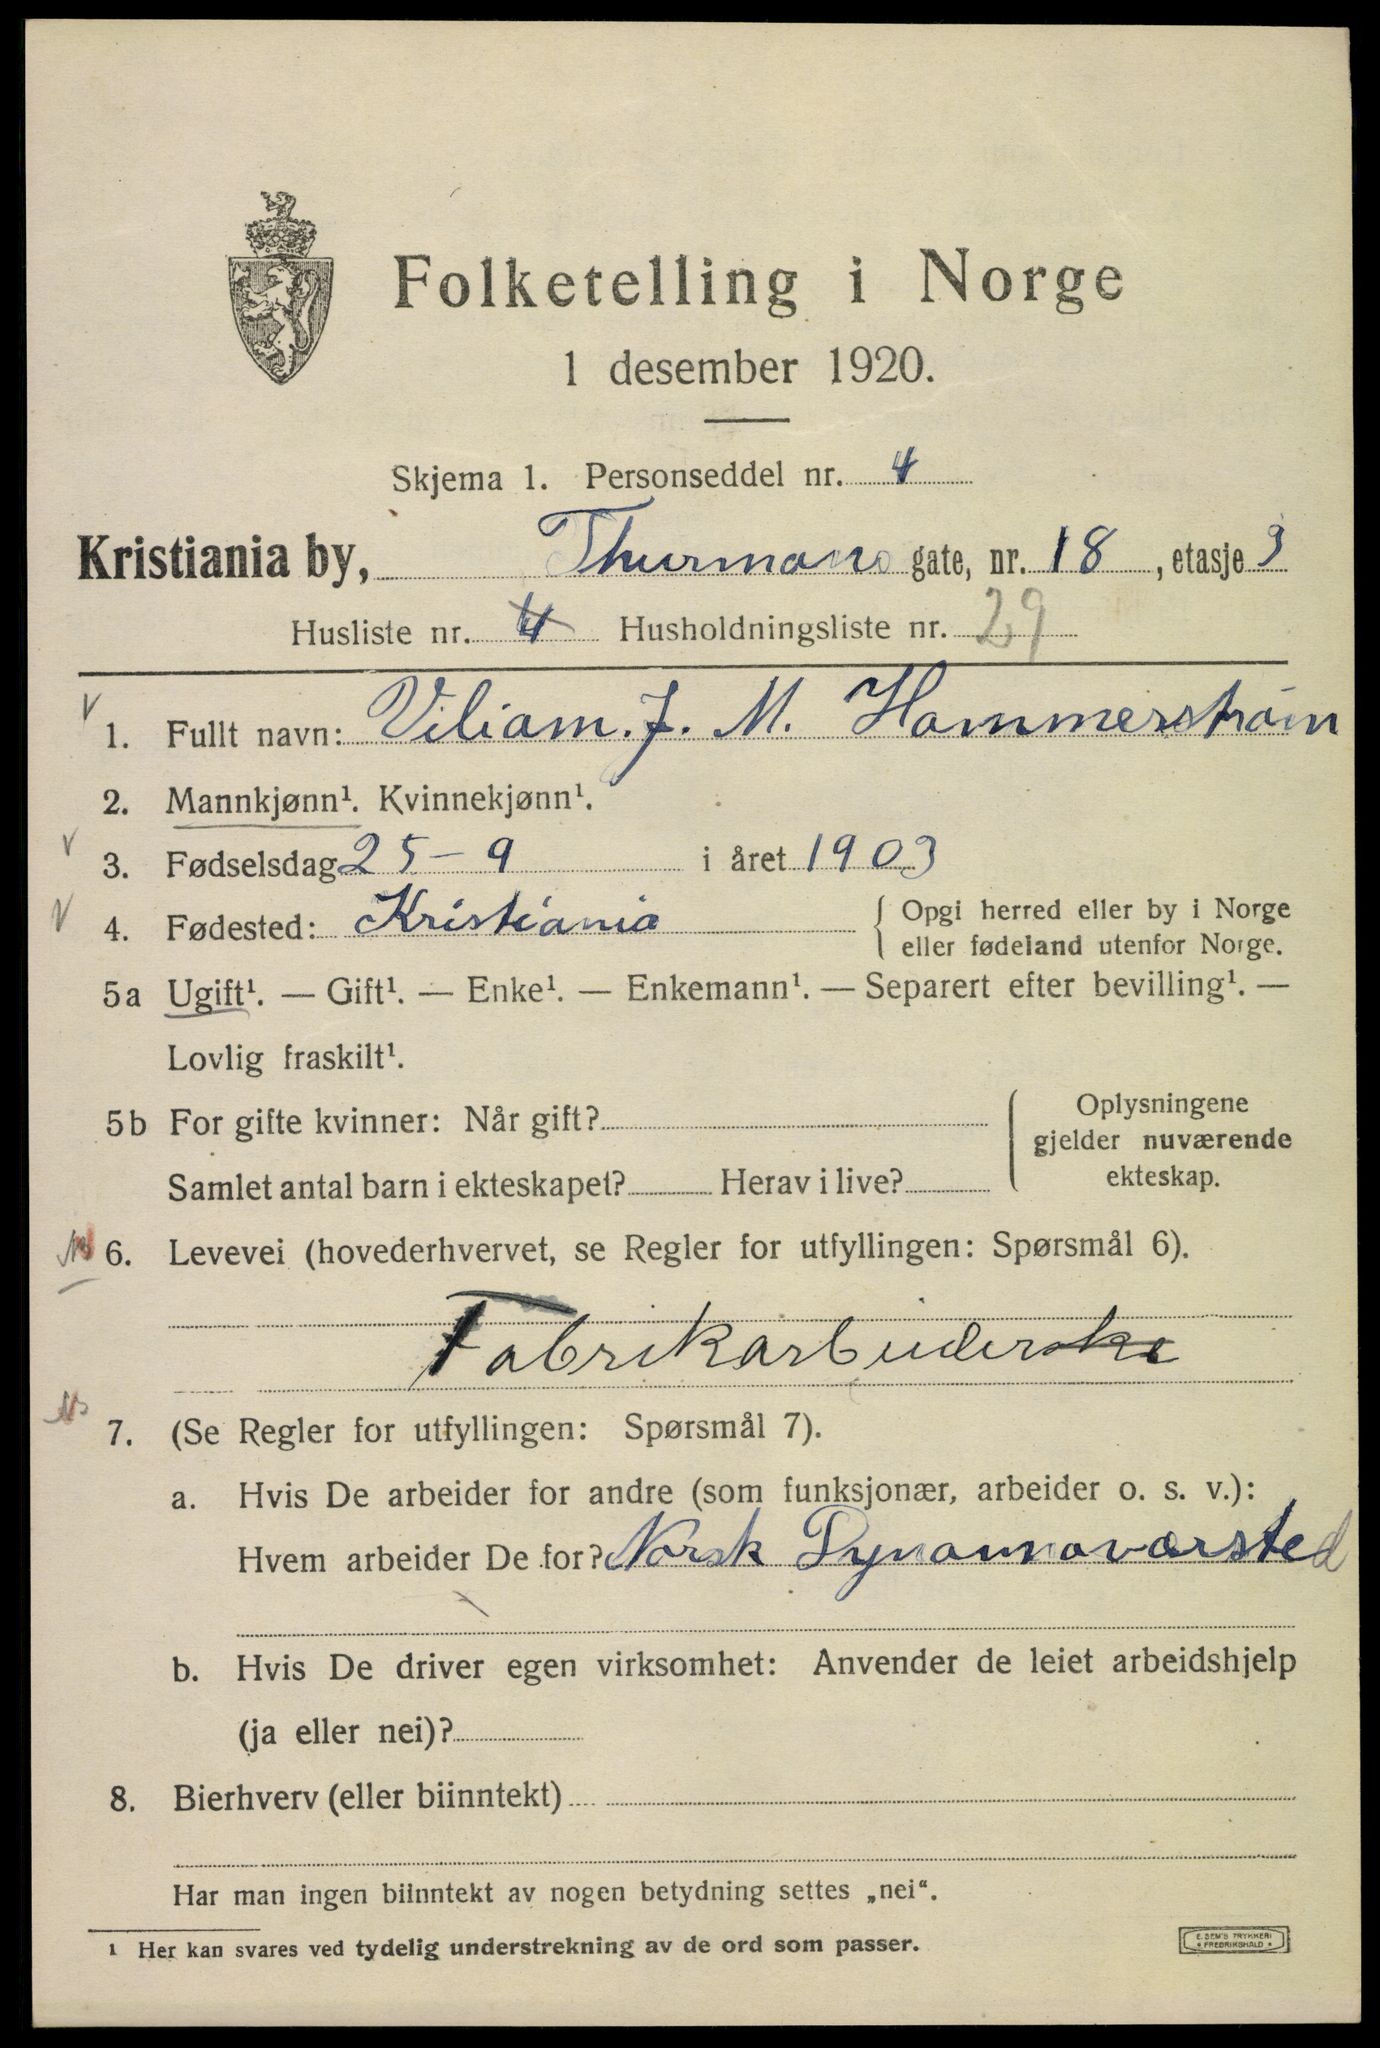 Folketelling i Norge
1 desember 1920.
Skjema 1. Personseddel nr. 4
Kristiania by, Thurmans gate, nr. 18, etasje 3
Husliste nr. 4 Husholdningsliste nr. 29
1. Fullt navn: Viliam. J. M. Hammerstrøm
2. Mannkjønn¹. Kvinnekjønn¹.
3. Fødselsdag 25-9 i året 1903
4. Fødested: Kristiania { Opgi herred eller by i Norge
eller fødeland utenfor Norge.
5a Ugift¹. — Gift¹. — Enke¹. — Enkemann¹. — Separert efter bevilling¹. —
Lovlig fraskilt¹.
5b For gifte kvinner: Når gift? { Oplysningene
gjelder nuværende
Samlet antal barn i ekteskapet? Herav i live? ekteskap.
6. Levevei (hovederhvervet, se Regler for utfyllingen: Spørsmål 6).
Fabrikarbeiderske
7. (Se Regler for utfyllingen: Spørsmål 7).
a. Hvis De arbeider for andre (som funksjonær, arbeider o. s. v.):
Hvem arbeider De for? Norsk Dynamoværsted
b. Hvis De driver egen virksomhet: Anvender de leiet arbeidshjelp
(ja eller nei)?
8. Bierhverv (eller biinntekt)
Har man ingen biinntekt av nogen betydning settes „nei“.
¹ Her kan svares ved tydelig understrekning av de ord som passer.
E. SEM'S TRYKKERI
• FREDRIKSHALD •